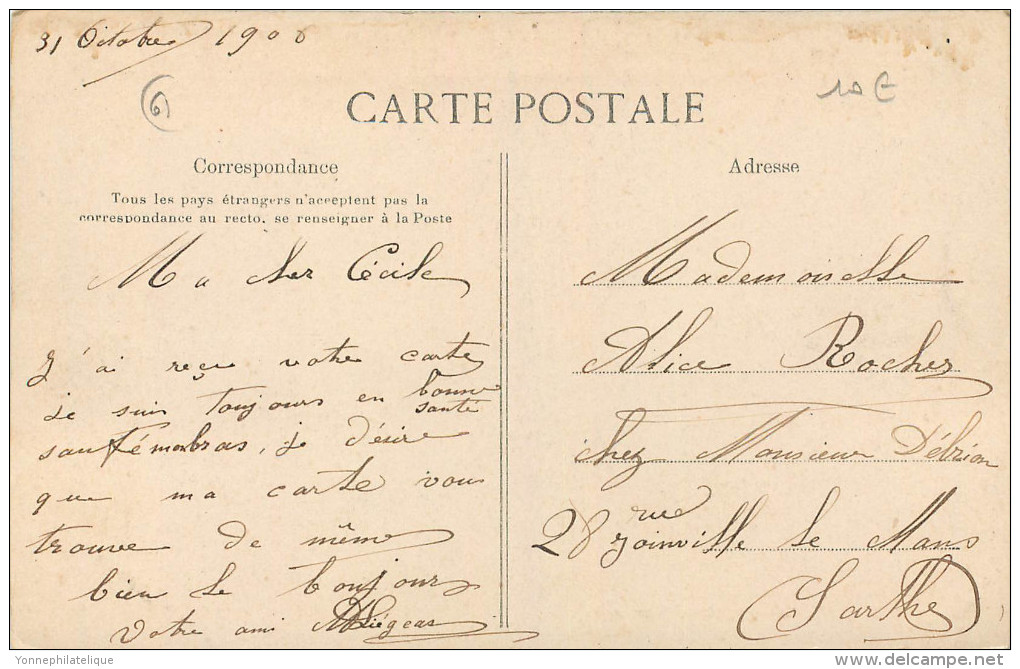 31 Octobre 1908
6
10 E
CARTE POSTALE
Correspondance
Tous les pays étrangers n'acceptent pas la
correspondance au recto, se renseigner à la Poste
Ma cher Cécile
J'ai reçu votre carte
je suis toujours en bonne
santé
sauf mon bras, je désire
que ma carte vous
trouve de même
bien le toujours
Votre ami
Adresse
Mademoiselle
Alice Rocher
chez Monsieur Débrion
28 rue
Joinville le Mans
Sarthe
Yonnephilatelique
delcampe.net